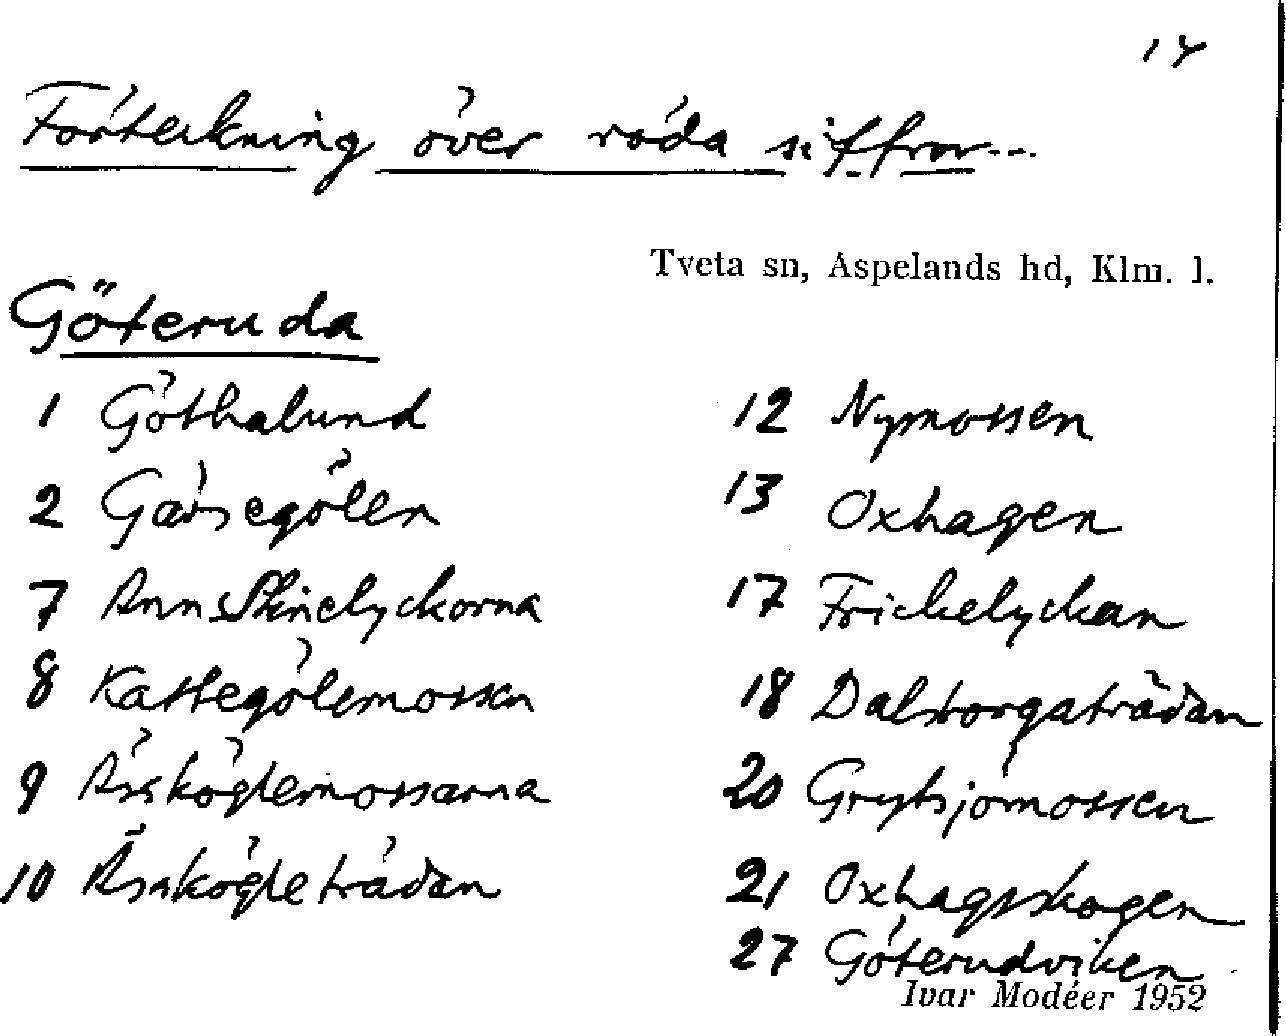 14
Förteckning över röda siffror...
Tveta sn, Aspelands hd, Klm. l.
Göteruda
1 Göthalund
2 Gåsegölen
7
8 Kattegölemossen
9 Äsköglemossarna
10 Äskögleträdan
12 Nymossen
13 Oxhagen
17 Frickelyckan
18 Dalstorgaträdan
20 Grytsjömossen
21 Oxhagsskogen
27 Göterudviken
Ivar Modéer 1952